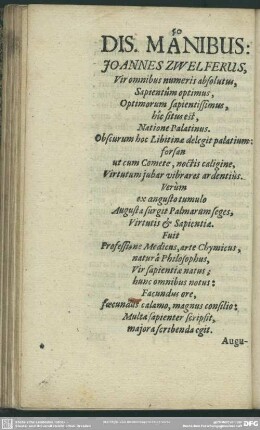 50
DIS. MANIBUS:
JOANNES ZWELFERUS,
Vir omnibus numeris absolutus,
Sapientûm optimus,
Optimorum sapientissimus,
hîc situs est,
Natione Palatinus.
Obscurum hoc Libitinæ delegit palatium:
forsan
ut cum Cometæ, noctis caligine,
Virtutum jubar vibraret ardentiùs.
Verùm
ex angusto tumulo
Augusta surgit Palmarum seges,
Virtutis & Sapientiæ.
Fuit
Professione Medicus, arte Chymicus,
naturâ Philosophus,
Vir sapientiæ natus;
hunc omnibus notus:
Facundus ore,
fœcundus calamo, magnus consilio:
Multa sapienter scripsit,
majora scribenda egit.
Augu-
DFG